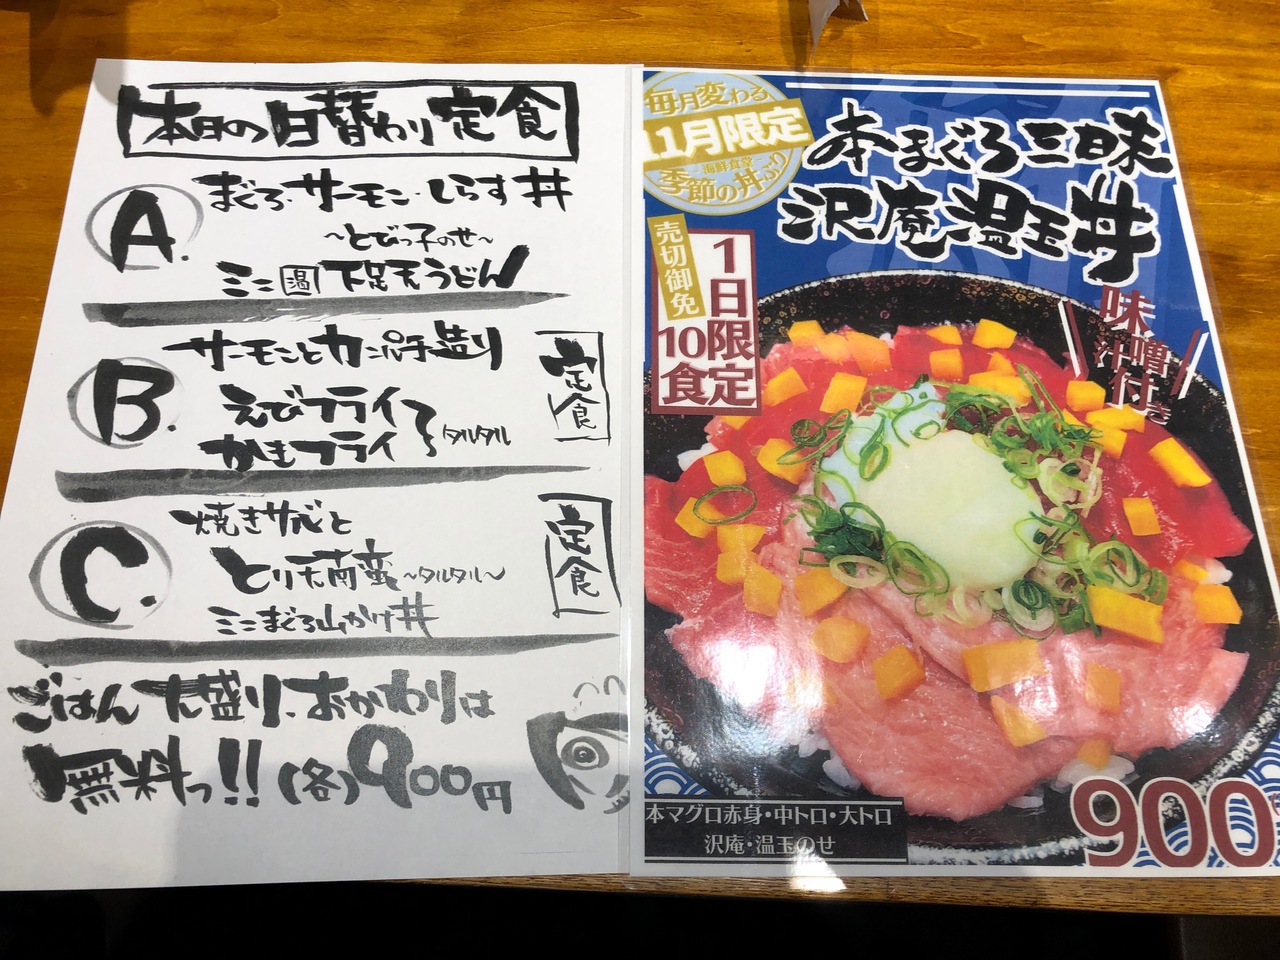 本日の日替わり定食
A.
まぐろ・サーモン・しらす丼
～とびっ子のせ～
ミニ温下足天うどん
B.
サーモンとカンパチ造り
えびフライ
かきフライ
タルタル
定食
C.
焼きサバと
とり天南蛮～タルタル～
ミニまぐろ山かけ丼
定食
ごはん大盛り、おかわりは
無料っ!!(各)900円
毎月変わる
11月限定
海鮮食堂
季節の丼ぶり
本まぐろ三昧
沢庵温玉丼
売切御免
1日限定
10食
味噌
汁付き
本マグロ赤身・中トロ・大トロ
沢庵・温玉のせ
900